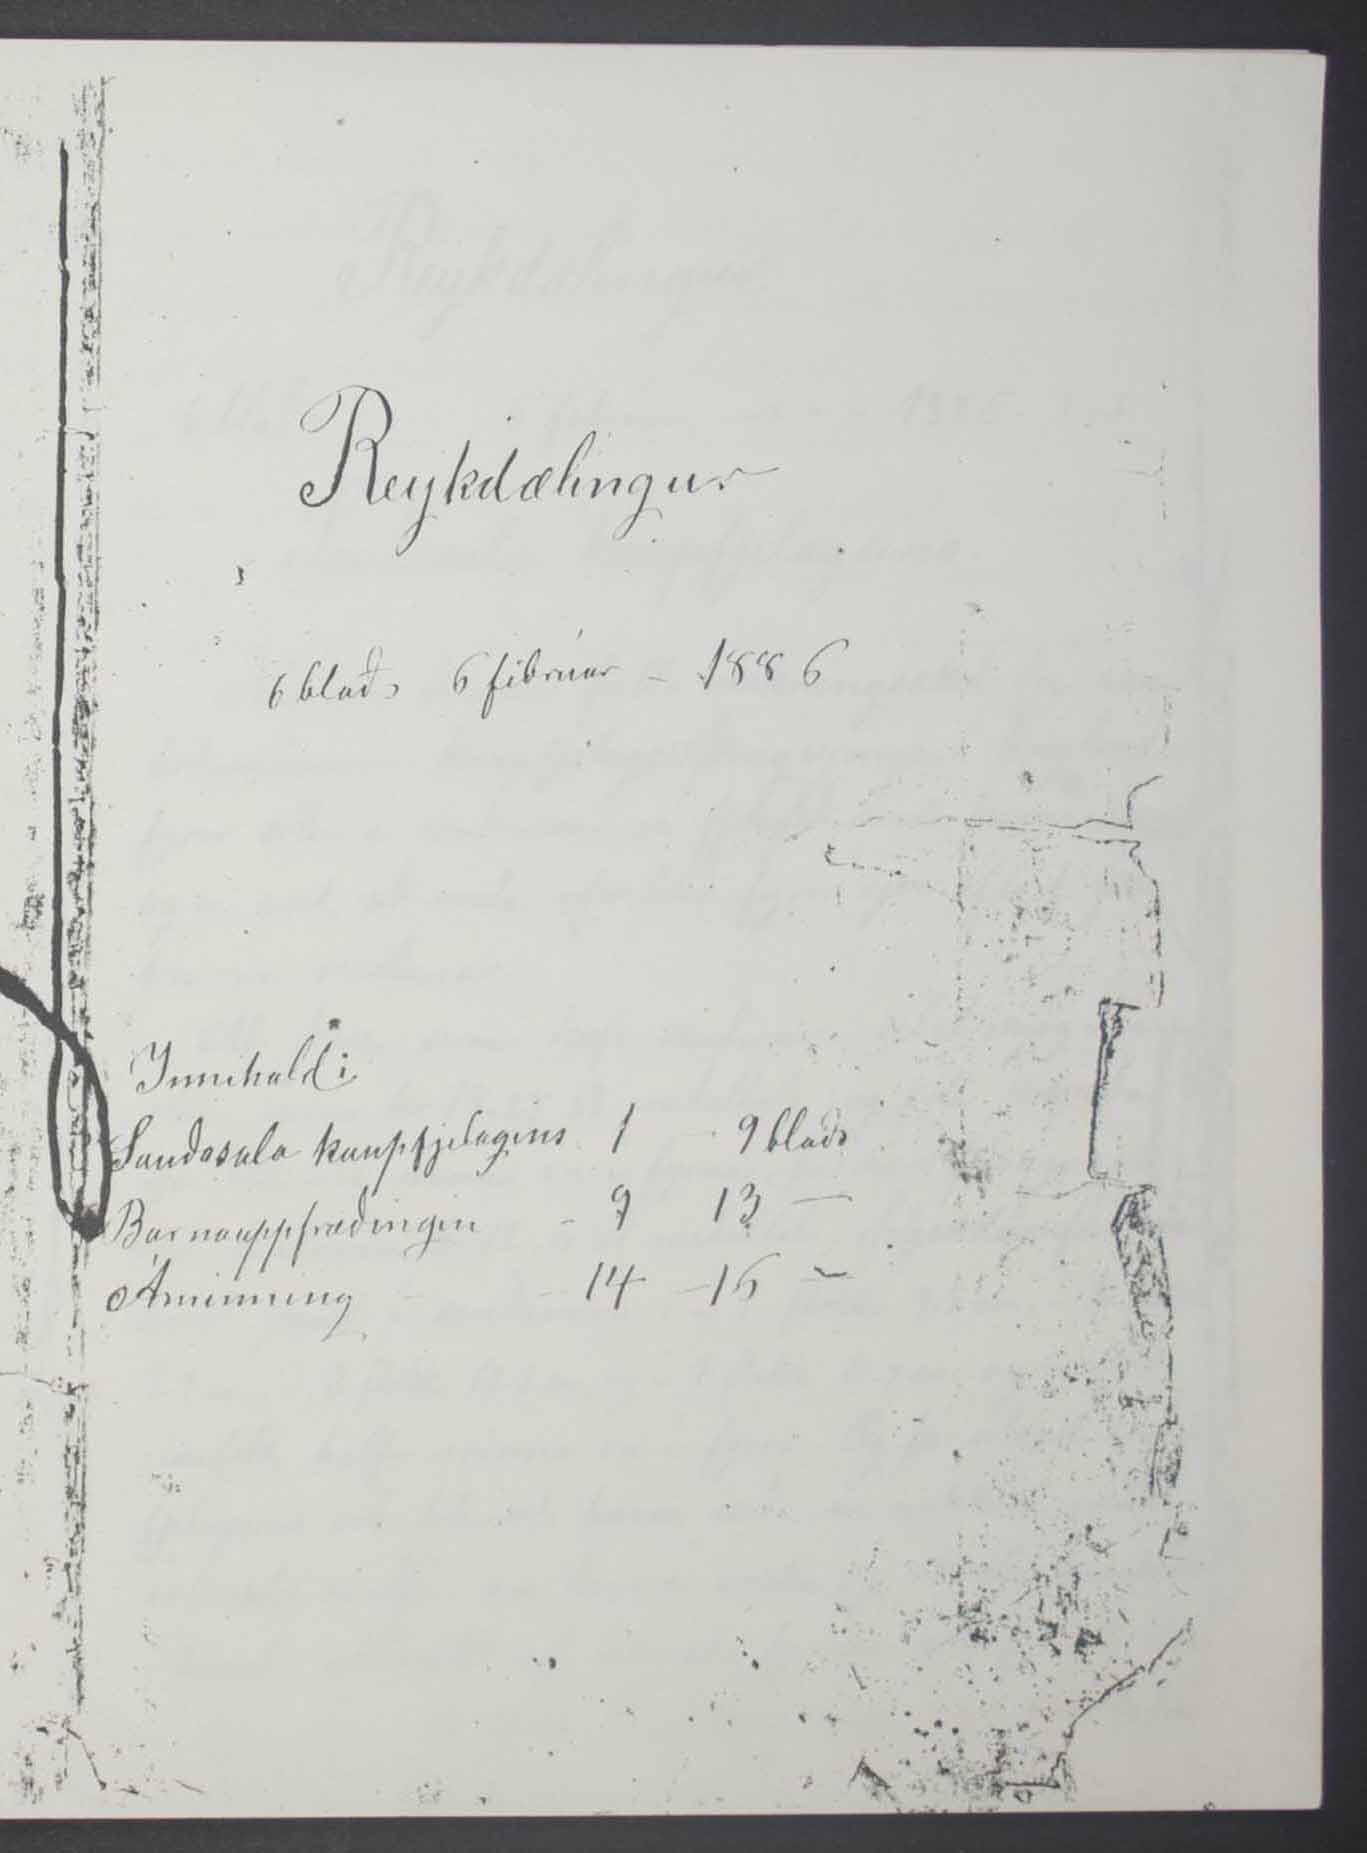 Reykdælingur
6 blað 6 febrúar - 1886
Innihald:
Sauðasala kaupfjelagins 1 - 9 blaðs
Barnauppfræðingin - 9 13 —
Áminning - 14 - 16 —